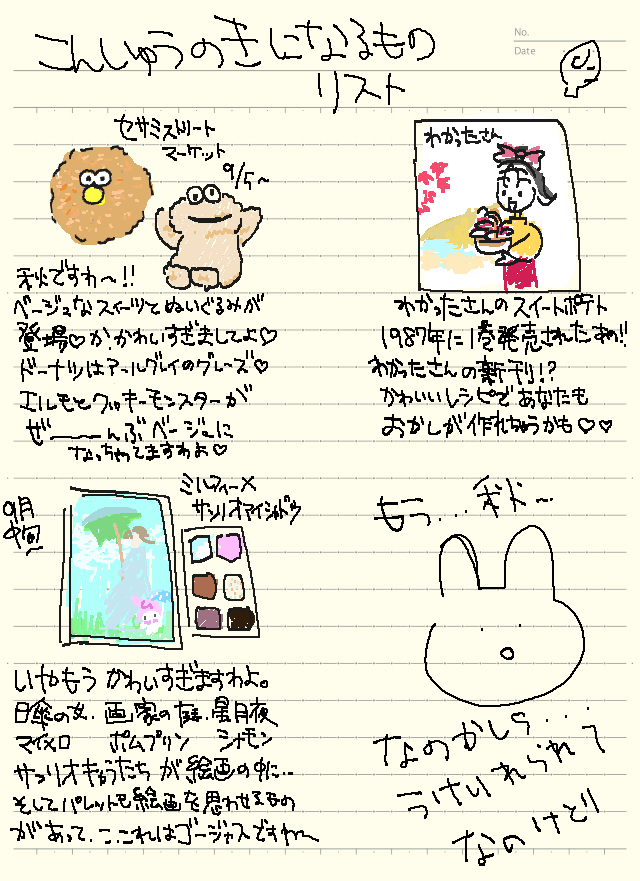 こんしゅうのきになるもの
リスト
No.
Date
セサミストリート
マーケット
9/5~
秋ですわ~!!
ベージュなスイーツとぬいぐるみが
登場♡か、かわいすぎましてよ♡
ドーナツはアールグレイのグレーズ♡
エルモとクッキーモンスターが
ぜ――んぶベージュに
なっちゃってますわよ♡
わかったさん
わかったさんのスイートポテト
1987年に1巻発売されたあの!!
わかったさんの新刊!?
かわいいレシピであなたも
おかしが作れちゃうかも♡♡
9月
中旬
ミルフィー×
サンリオアイシャドウ
いやもうかわいすぎますわよ。
日傘の女、画家の庭、星月夜
マイメロ ポムプリン シナモン
サンリオキャラたちが絵画の中に…
そしてパレットも絵画を思わせるもの
があって、ここれはゴージャスですわ~
もう…秋ド~
なのかしら...
うけいれられて
なのけど!!